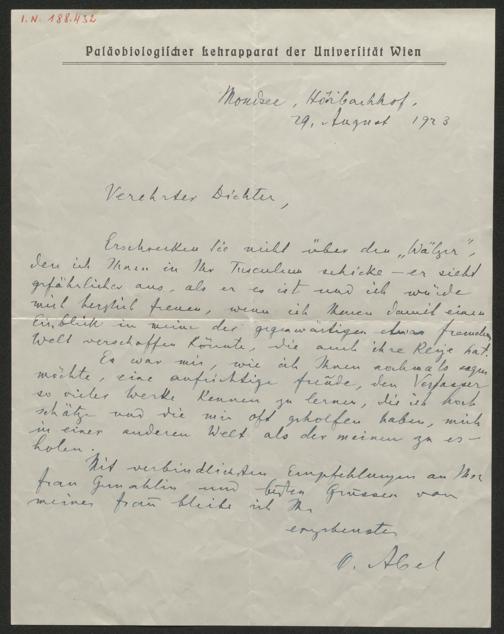 I.N. 188.432
Paläobiologischer Lehrapparat der Universität Wien
Mondsee, Höribachhof,
29. August 1923
Verehrter Dichter,
Erschrecken Sie nicht über den „Wälzer",
den ich Ihnen in Ihr Tusculum schicke – er sieht
gefährlicher aus, als er es ist und ich würde
mich herzlich freuen, wenn ich Ihnen damit einen
Einblick in meine der gegenwärtigen etwas fremden
Welt verschaffen könnte, die auch ihre Reize hat.
Es war mir, wie ich Ihnen nochmals sagen
möchte, eine aufrichtige Freude, den Verfasser
so vieler Werke kennen zu lernen, die ich hoch
schätze und die mir oft geholfen haben, mich
in einer anderen Welt als der meinen zu er-
holen.
Mit verbindlichsten Empfehlungen an Ihre
Frau Gemahlin und besten Grüssen von
meiner Frau bleibe ich Ihr
ergebenster
O. Abel